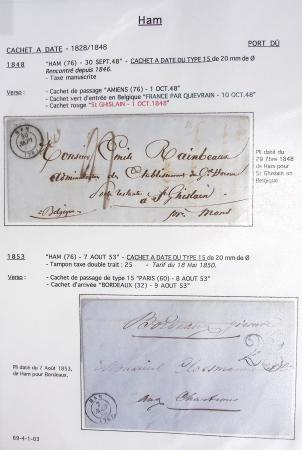 Ham
CACHET A DATE - 1828/1848
PORT DÛ
1848 "HAM (76) - 30 SEPT.48" - CACHET A DATE DU TYPE 15 de 20 mm de Ø
Rencontré depuis 1846.
- Taxe manuscrite
Verso : - Cachet de passage "AMIENS (76) - 1 OCT.48"
- Cachet vert d'entrée en Belgique "FRANCE PAR QUIEVRAIN - 1O OCT.48"
- Cachet rouge "St GHISLAIN - 1 OCT.1848"
Monsieur Emile Rainbeaux
administrateur des Etablissements du Gd Hornu
St Ghislain
(Belgique)
près Mons
Pli daté du
29 7bre 1848
de Ham pour
St Ghislain en
Belgique
1853 "HAM (76) - 7 AOUT 53" - CACHET A DATE DU TYPE 15 de 20 mm de Ø
- Tampon taxe double trait : 25 - Tarif du 18 Mai 1850.
Verso : - Cachet de passage de type 15 "PARIS (60) - 8 AOUT 53"
- Cachet d'arrivée "BORDEAUX (32) - 9 AOUT 53"
Bordeaux
Monsieur
aux Chartrons
HAM
Pli daté du 7 Août 1853,
de Ham pour Bordeaux.
69-4-1-03